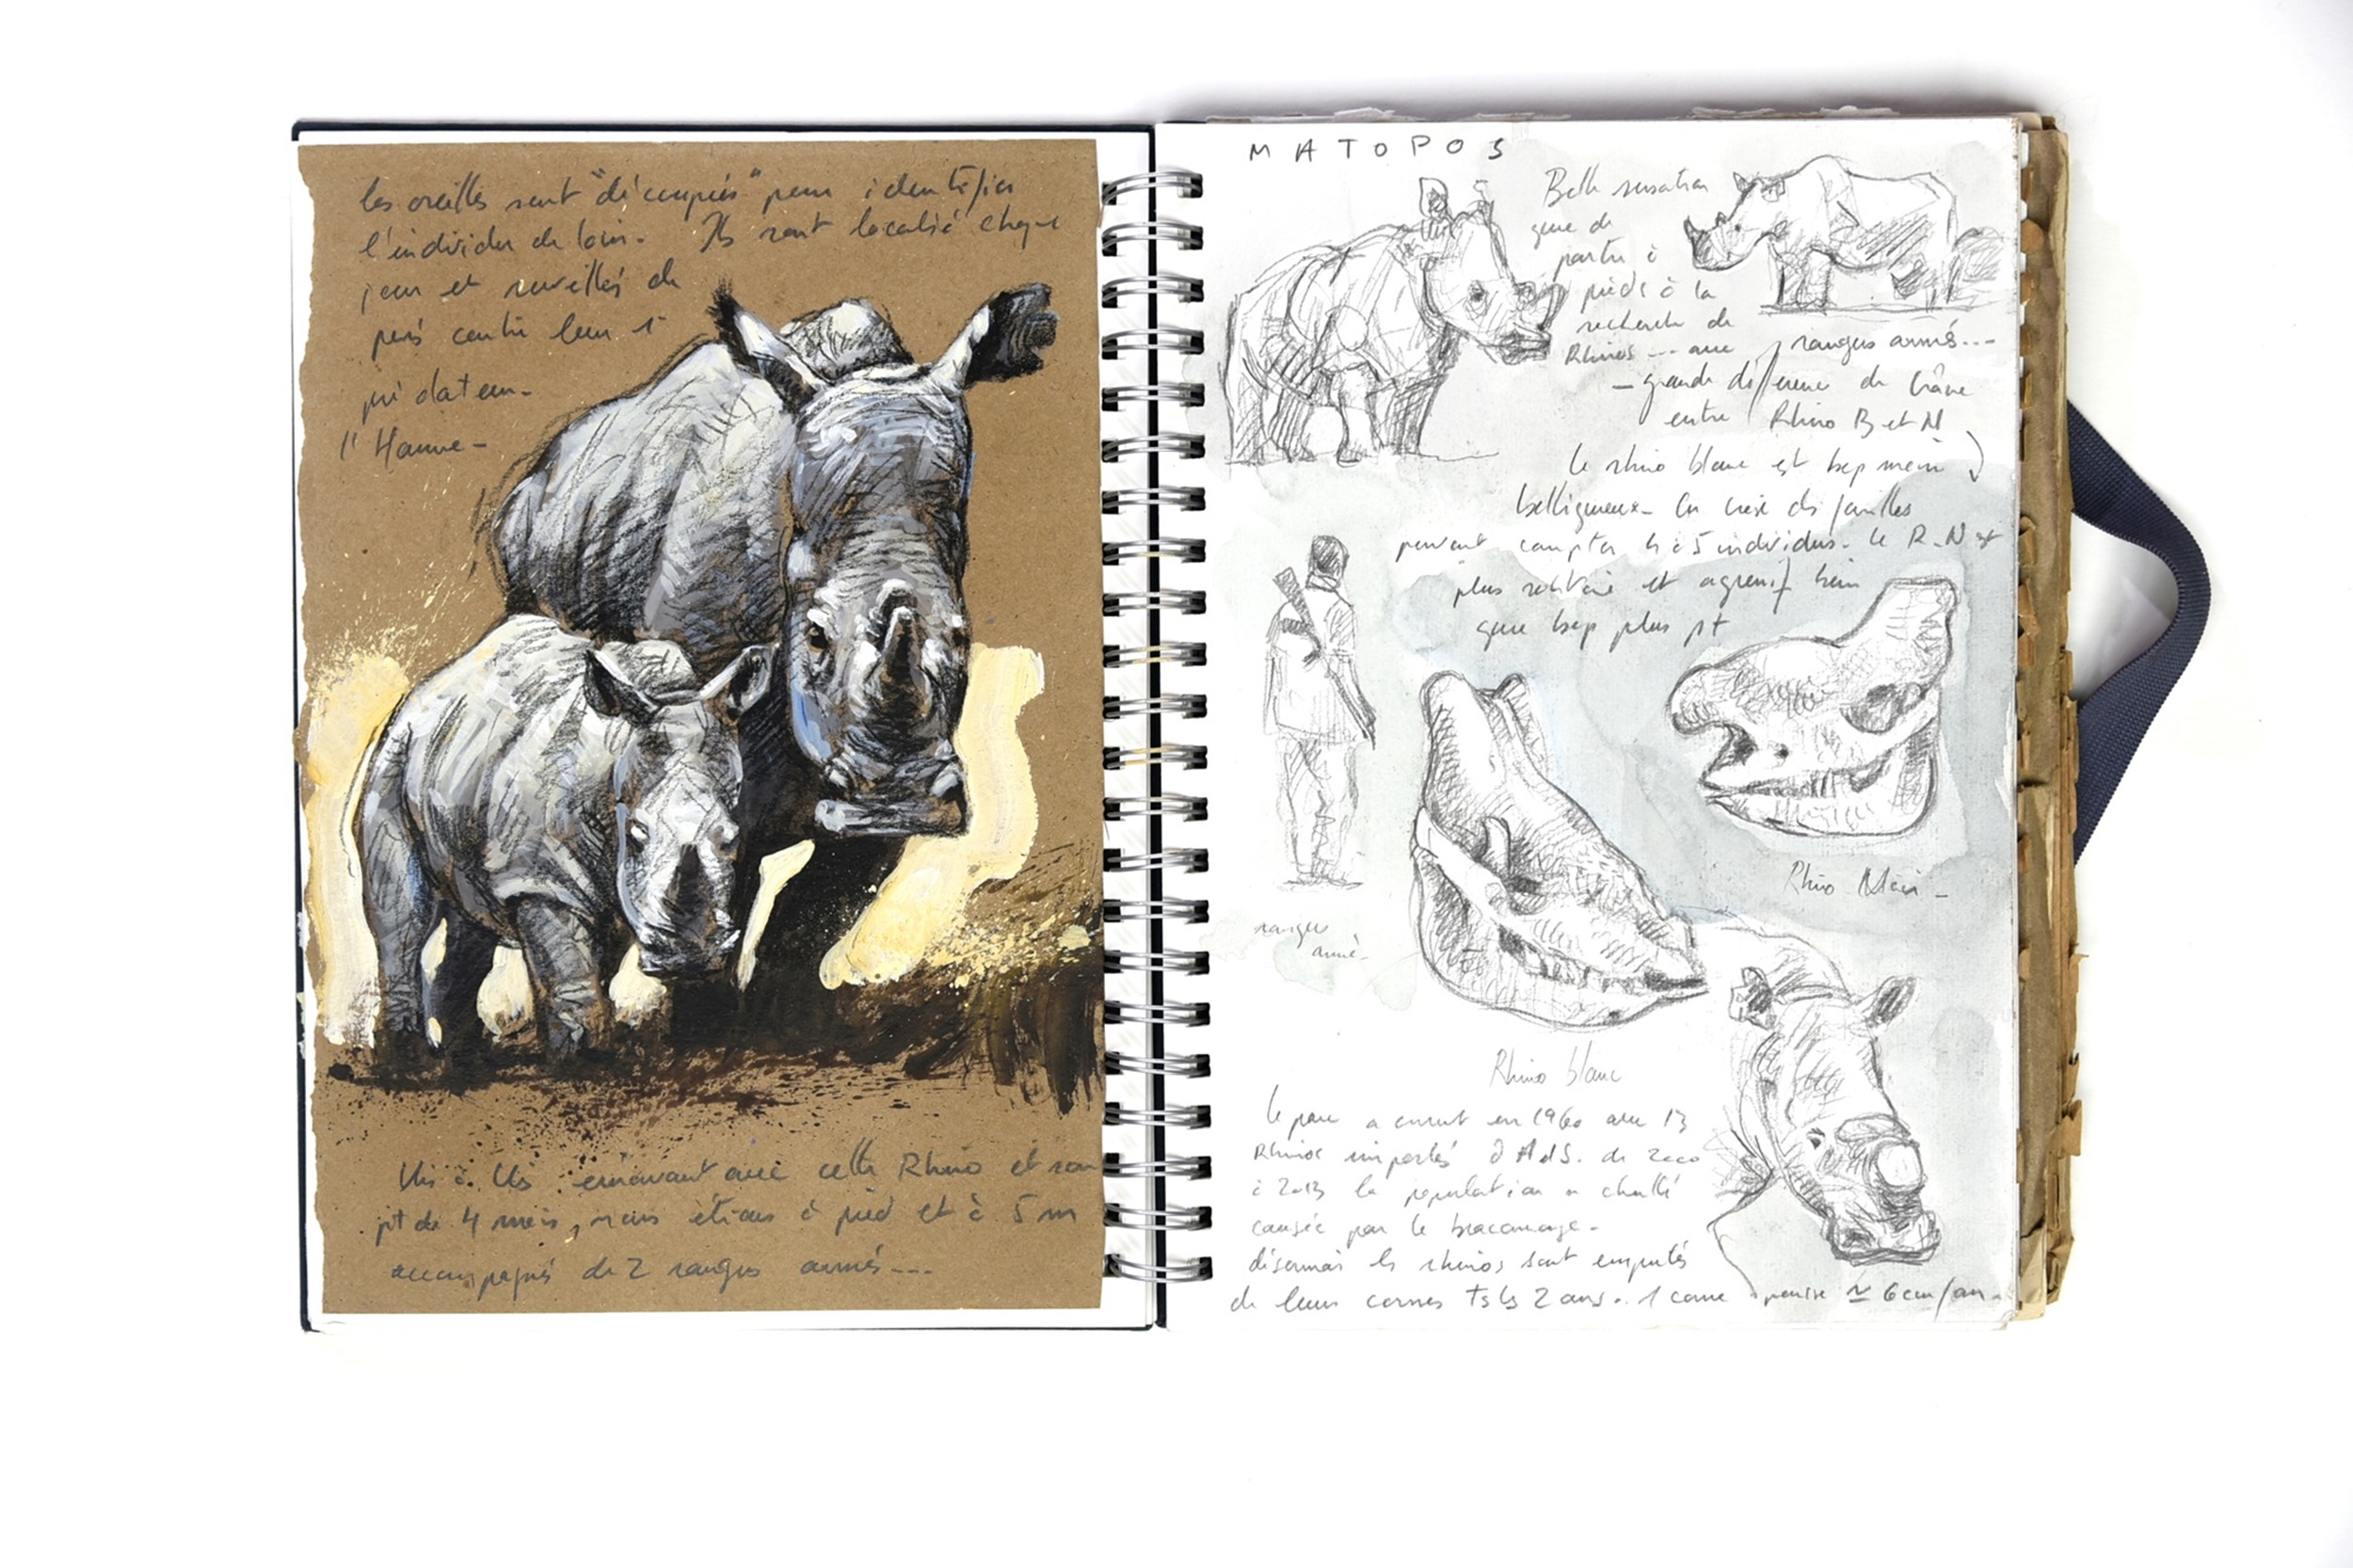 les oreilles sont "découpées" pour identifier
l'individu de loin. Ils sont localisé chaque
jour et surveillés de
près contre leur 1er
prédateur.
l'Homme -
Vis à Vis émouvant avec cette Rhino et son
pt de 4 mois, nous étions à pied et à 5 m
accompagnés de 2 rangers armés...
MATOPOS
Belle sensation
que de
partir à
pieds à la
recherche de
Rhinos ... avec rangers armés...
- grande différence de crâne
entre Rhino B et N
le rhino blanc est bcp moins
belliqueux - des familles
peuvent compter 4 à 5 individus. le R.N est
plus solitaire et agressif bien
que bcp plus pt
Rhino Noir -
ranger
armé.
Rhino blanc
le parc a ouvert en 1960 avec 13
Rhinos importés d'AdS. de 2000
à 2013 la population a chuté
causée par le braconnage -
désormais les rhinos sont amputés
de leurs cornes ts ls 2 ans.. 1 corne pousse ≃ 6 cm/an.